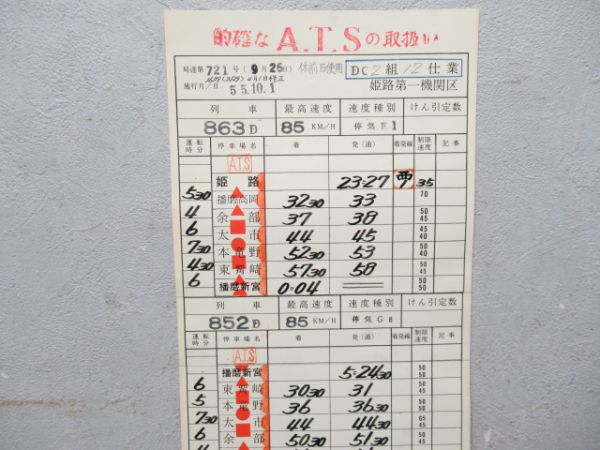 的確な A.T.S の取扱
局達第 721 号 (9月26日) 休前日使用 DC2組12仕業
施行月/日 55.10.1 姫路第一機関区
列車 最高速度 速度種別 けん引定数
863D 85 KM/H 停気 F1
運転時分 停車場名 着 発(通) 着発線 制限速度 記事
A.T.S
姫路 23:27 西1 35
530 播磨高岡 3230 33 70
4 余部 37 38 50 45
6 太市 44 45 45 40
730 本竜野 5230 53 50 40
430 東觜崎 5730 58 50 45
6 播磨新宮 0:04 45
列車 最高速度 速度種別 けん引定数
852D 85 KM/H 停気 G8
運転時分 停車場名 着 発(通) 着発線 制限速度 記事
A.T.S
播磨新宮 5:2430 50 50
6 東觜崎 3030 31 50 45
5 本竜野 36 3630 50 45
730 太市 44 4430 65 45
6 余部 5030 5130 50 50